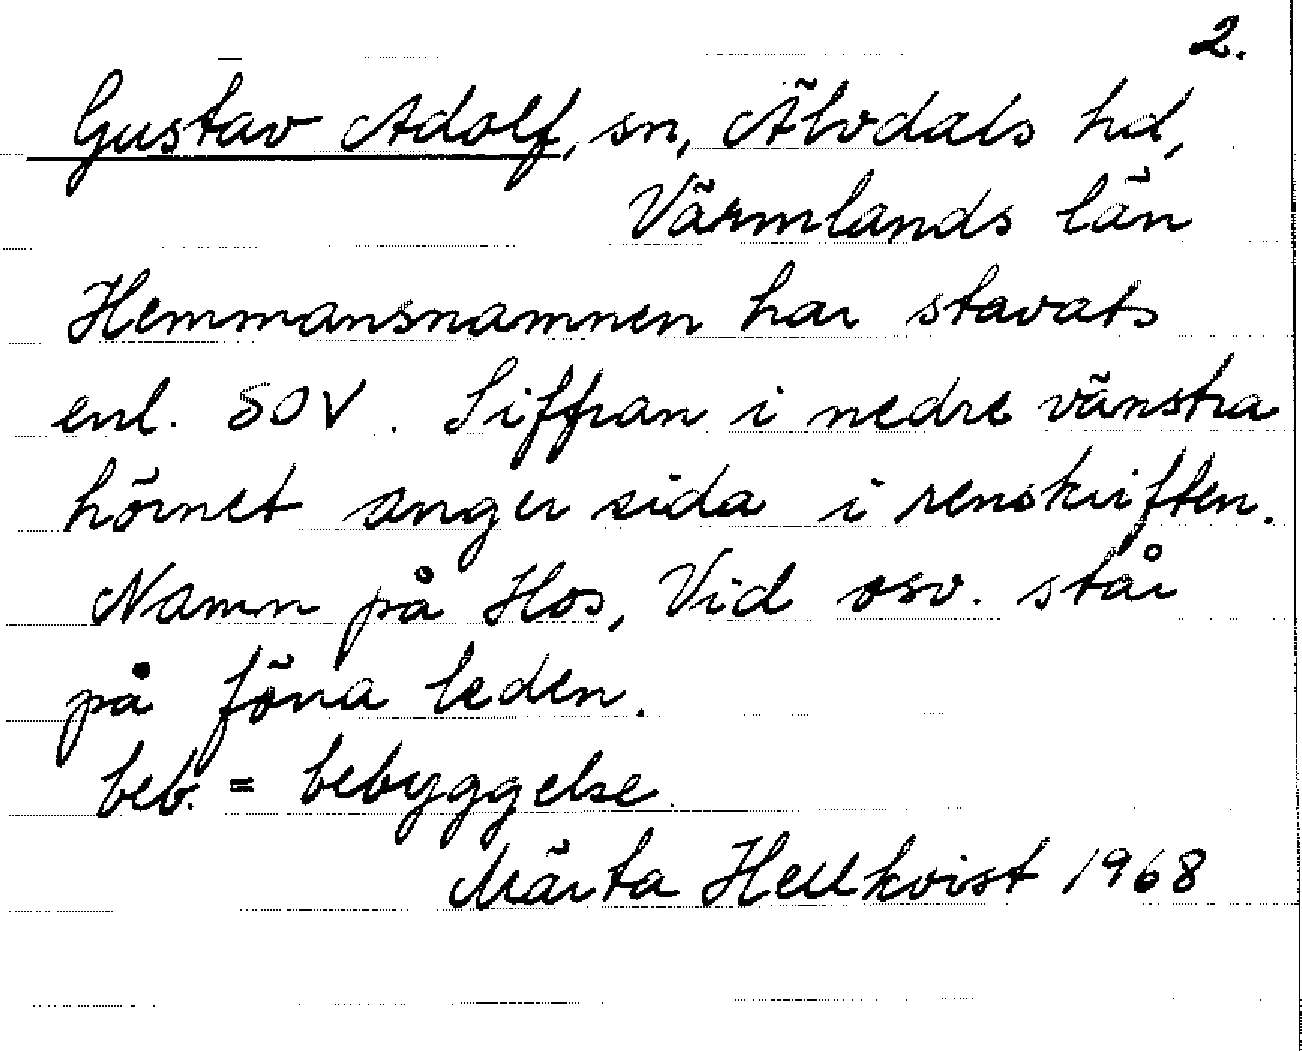 2.
Gustav Adolf, sn, Älvdals hd,
Värmlands län
Hemmansnamnen har stavats
enl. SOV. Siffran i nedre vänstra
hörnet anger sida i renskriften.
Namn på Hos, Vid osv. står
på förra leden.
beb. = bebyggelse.
Märta Hellkvist 1968